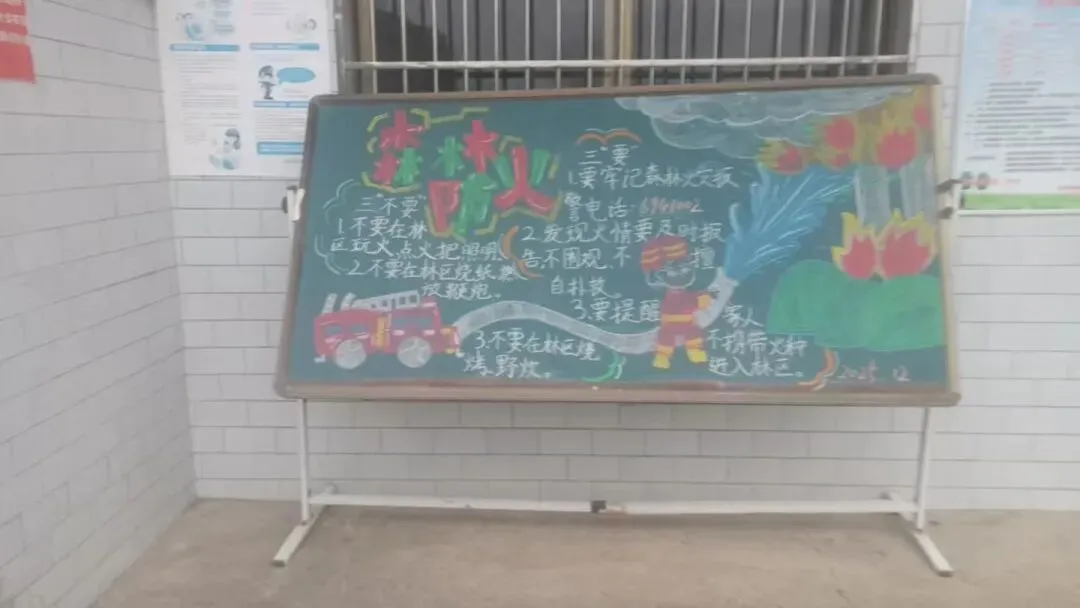 森林
防火
三"不要"
1.不要在林
区玩火、点火把照明、
2.不要在林区烧纸、燃
放鞭炮。
3.不要在林区烧
烤、野炊。
三"要"
1.要牢记森林火灾报
警电话:6961002
2.发现火情要及时报
告,不围观、不擅
自扑救。
3.要提醒家人
不携带火种
进入林区。
2025.12